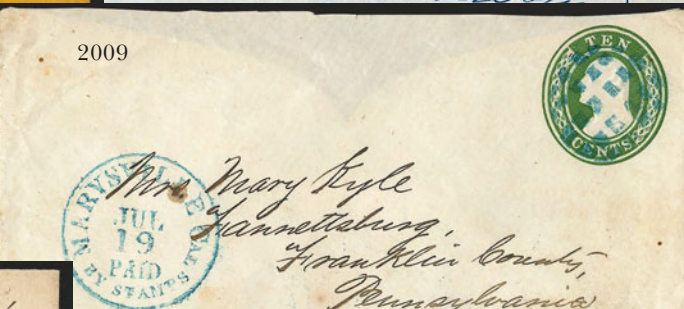 2009
TEN
CENTS
MARYSVILLE CAL
JUL
19
PAID
BY STAMPS
Mrs Mary Kyle
Fannettsburg,
Franklin County,
Pennsylvania